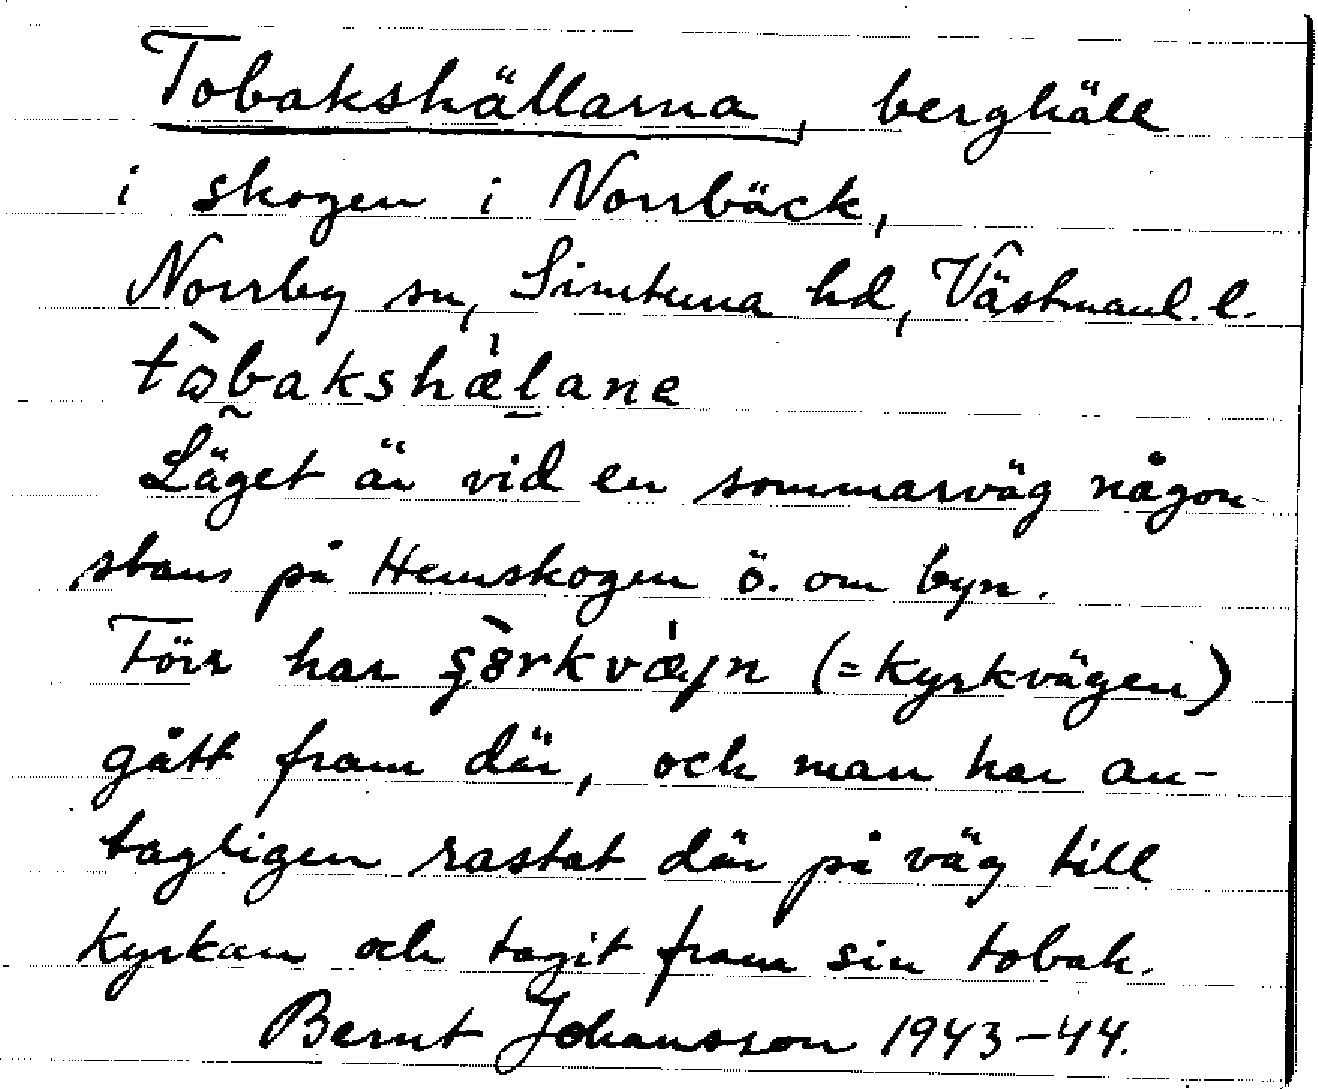 Tobakshällarna, berghäll
i skogen i Norrbäck,
Norrby sn, Simtuna hd, Västmanl. l.
tòbakshæ̀lane
Läget är vid en sommarväg någon-
stans på Hemskogen ö. om byn.
Förr har çörkvæjn (=Kyrkvägen)
gått fram där, och man har an-
tagligen rastat där på väg till
kyrkan och tagit fram sin tobak.
Bernt Johansson 1943-44.